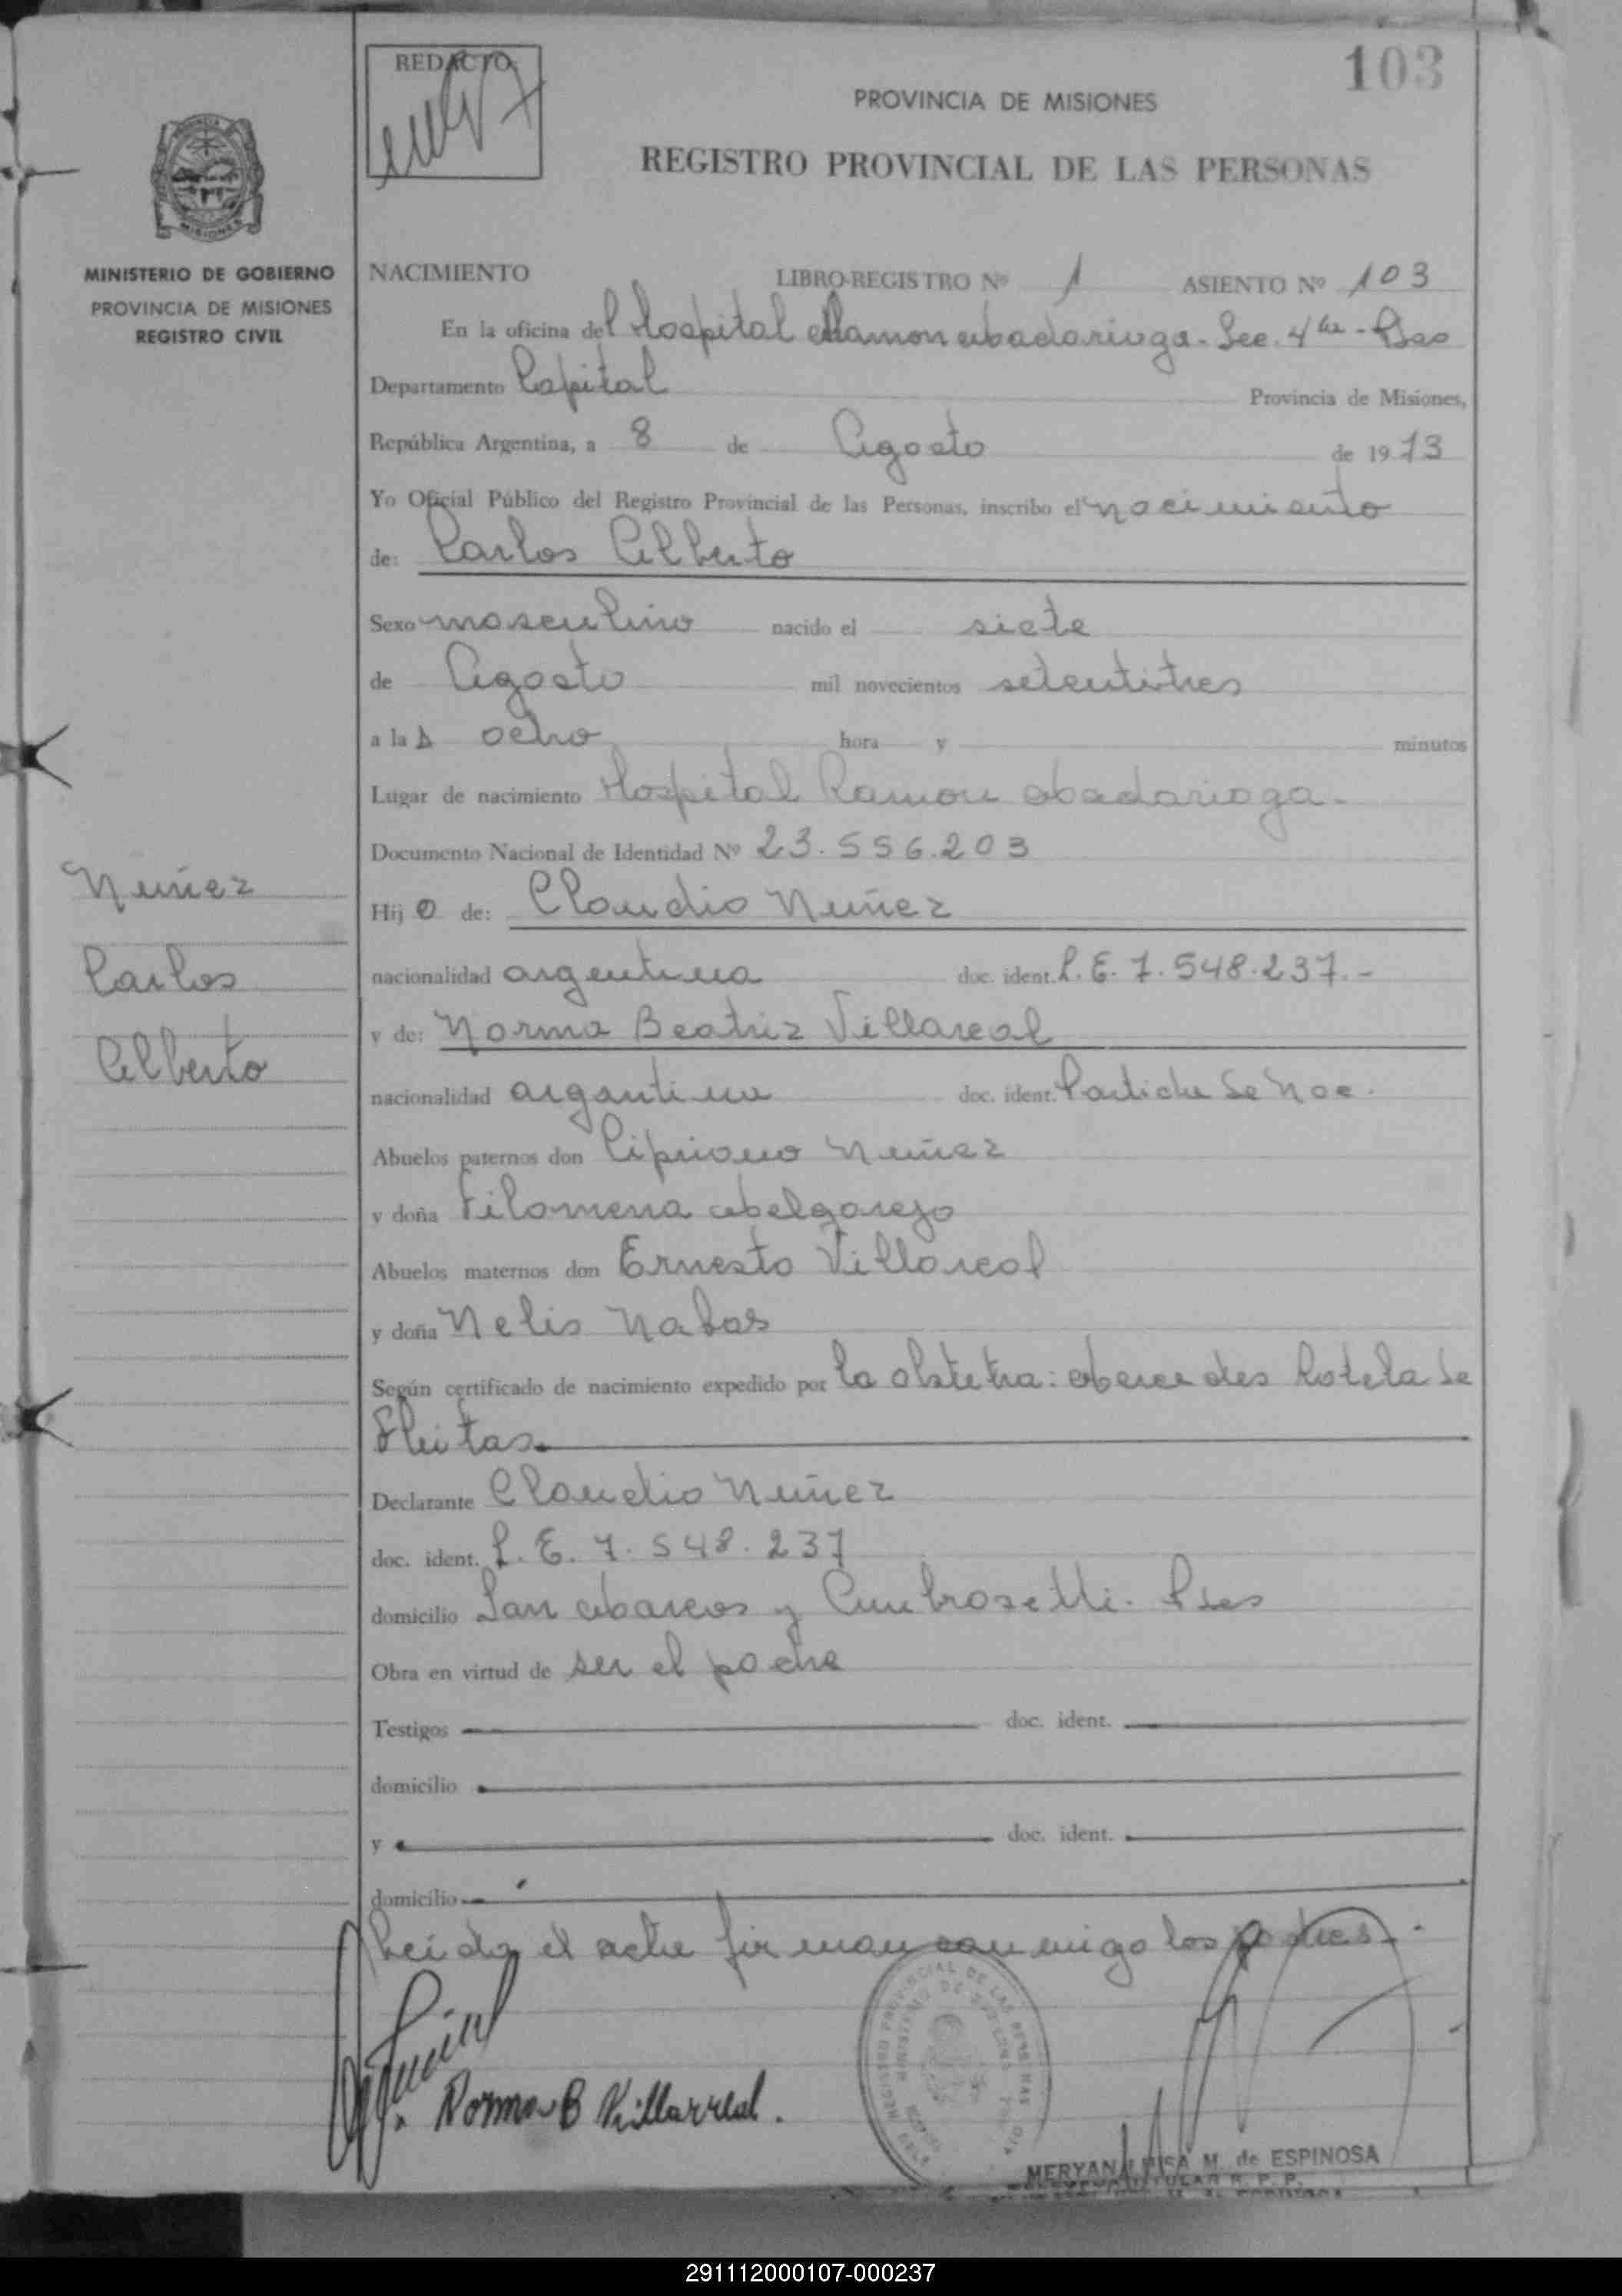 REDACTO
103
PROVINCIA DE MISIONES
REGISTRO PROVINCIAL DE LAS PERSONAS
MISIONES
MINISTERIO DE GOBIERNO
PROVINCIA DE MISIONES
REGISTRO CIVIL
NACIMIENTO LIBRO-REGISTRO Nº 1 ASIENTO Nº 103
En la oficina del Hospital Ramon Madariaga - Sec. 4ta - Pdas
Departamento Capital Provincia de Misiones,
República Argentina, a 8 de Agosto de 1973
Yo Oficial Público del Registro Provincial de las Personas, inscribo el nacimiento
de: Carlos Alberto
Sexo masculino nacido el siete
de Agosto mil novecientos setentitres
a las ocho hora y minutos
Lugar de nacimiento Hospital Ramon Madariaga -
Documento Nacional de Identidad Nº 23.556.203
Nuñez
Carlos
Alberto
Hijo de: Claudio Nuñez
nacionalidad argentina doc. ident. L.E. 7.548.237.-
y de: Norma Beatriz Villareal
nacionalidad argentina doc. ident. Partida de Nac.
Abuelos paternos don Cipriano Nuñez
y doña Filomena Melgarejo
Abuelos maternos don Ernesto Villareal
y doña Nelis
Según certificado de nacimiento expedido por la obstetra: Mercedes Rotela de
Fleitas.
Declarante Claudio Nuñez
doc. ident. L.E. 7.548.237
domicilio San Marcos y Ambrosetti. Pdas
Obra en virtud de ser el padre
Testigos doc. ident.
domicilio
y doc. ident.
domicilio
Leida el acta firman conmigo los padres.-
Norma B Villarreal.
REGISTRO PROVINCIAL DE LAS PERSONAS
M. de ESPINOSA
291112000107-000237